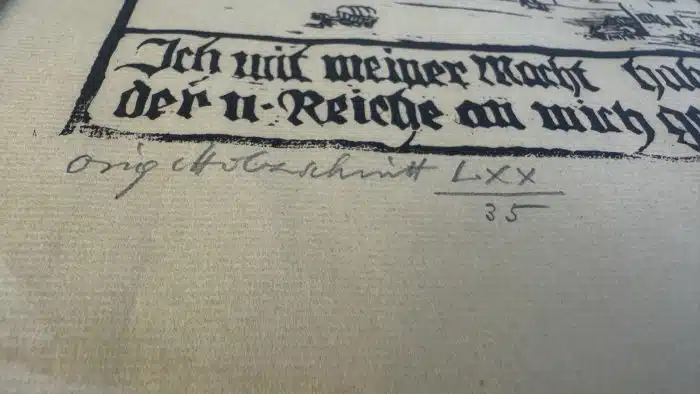 Ich mit meiner Macht hab
der n-Reiche an mich g
Orig Holzschnitt LXX
35